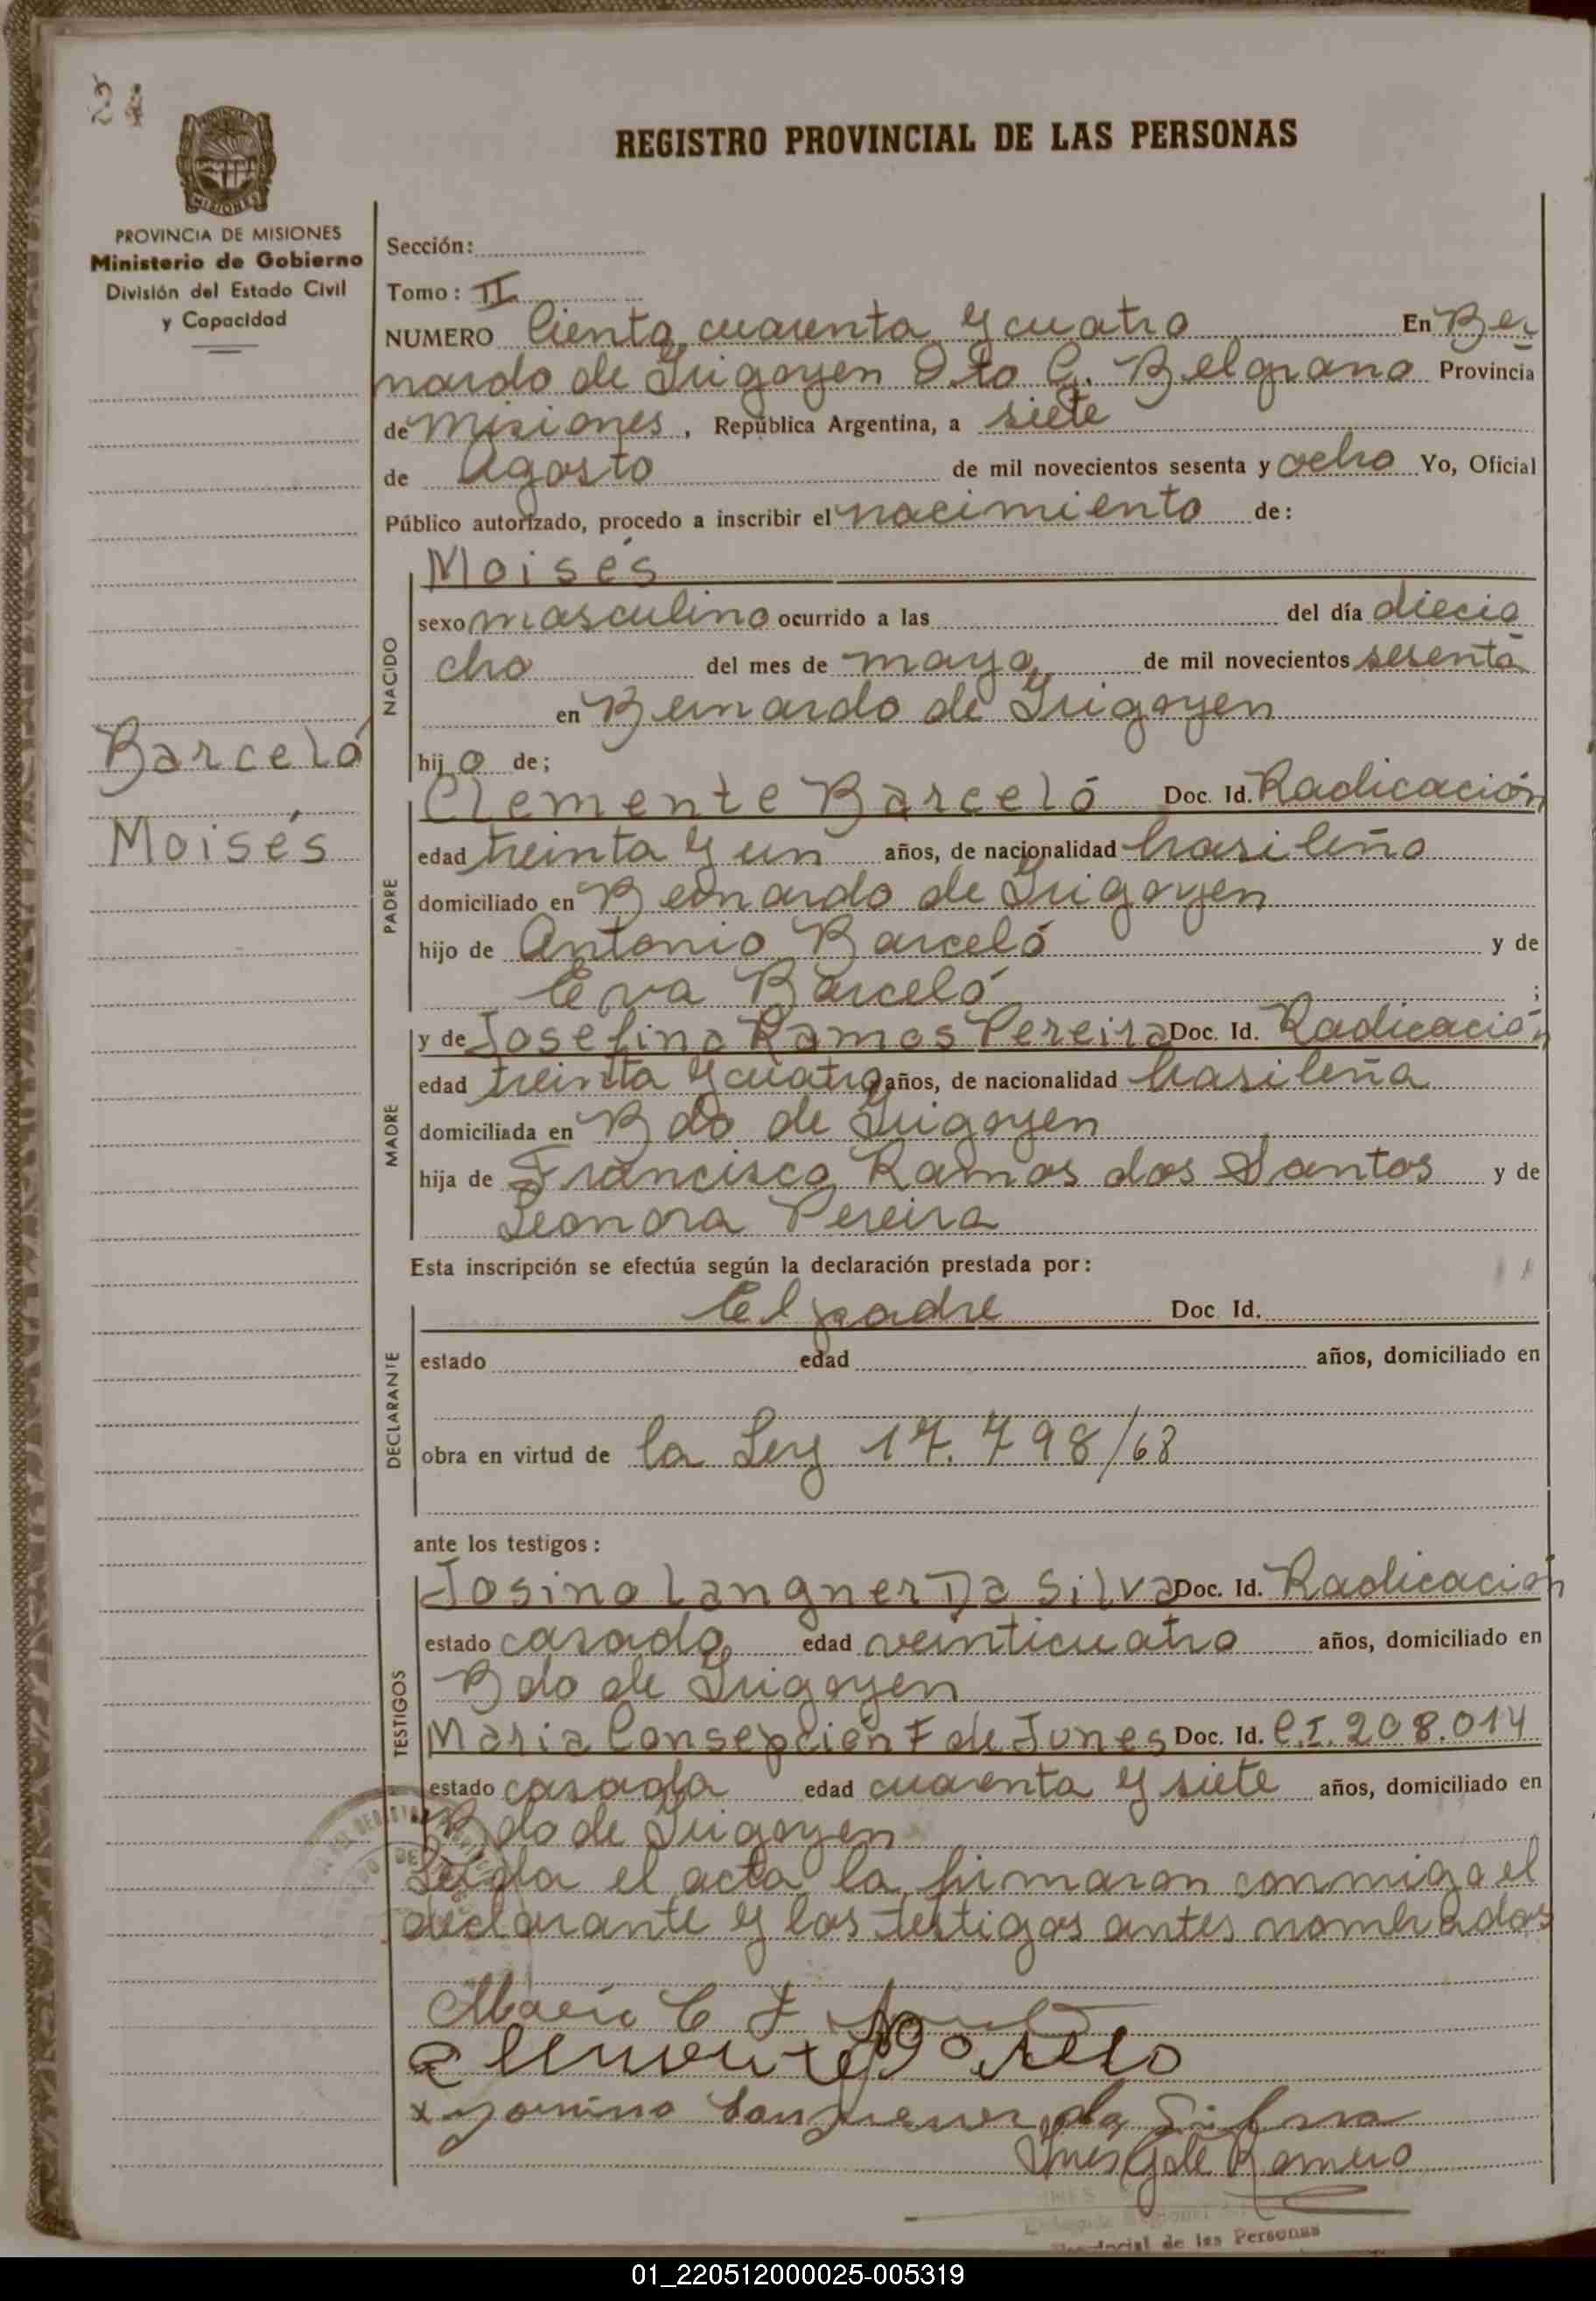 24
REGISTRO PROVINCIAL DE LAS PERSONAS
PROVINCIA DE MISIONES
Ministerio de Gobierno
División del Estado Civil
y Capacidad
Sección:
Tomo: II
NUMERO Ciento cuarenta y cuatro En Ber
nardo de Irigoyen Dto G. Belgrano Provincia
de Misiones, República Argentina, a siete
de Agosto de mil novecientos sesenta y ocho Yo, Oficial
Público autorizado, procedo a inscribir el nacimiento de:
NACIDO
Moisés
sexo masculino ocurrido a las del día diecio
cho del mes de mayo de mil novecientos sesenta
en Bernardo de Irigoyen
hijo de;
Barceló
Moisés
PADRE
Clemente Barceló Doc. Id. Radicación
edad treinta y un años, de nacionalidad brasileño
domiciliado en Bernardo de Irigoyen
hijo de Antonio Barceló y de
Eva Barceló ;
MADRE
y de Josefina Ramos Pereira Doc. Id. Radicación
edad treinta y cuatro años, de nacionalidad brasileña
domiciliada en Bdo de Irigoyen
hija de Francisco Ramos dos Santos y de
Leonora Pereira
Esta inscripción se efectúa según la declaración prestada por:
DECLARANTE
El padre Doc. Id.
estado edad años, domiciliado en
obra en virtud de la Ley 17.798/68
ante los testigos:
TESTIGOS
Josino Langner Da Silva Doc. Id. Radicación
estado casado edad veinticuatro años, domiciliado en
Bdo de Irigoyen
Maria Consepción F de Junes Doc. Id. C.I. 208.014
estado casada edad cuarenta y siete años, domiciliado en
Bdo de Irigoyen
Leída el acta la firmaron conmigo el
declarante y los testigos antes nombrados
Maria C F
Clemente Barcelo
x Josino Langner da Silva
Ines G de Romero
de las Personas
01_220512000025-005319